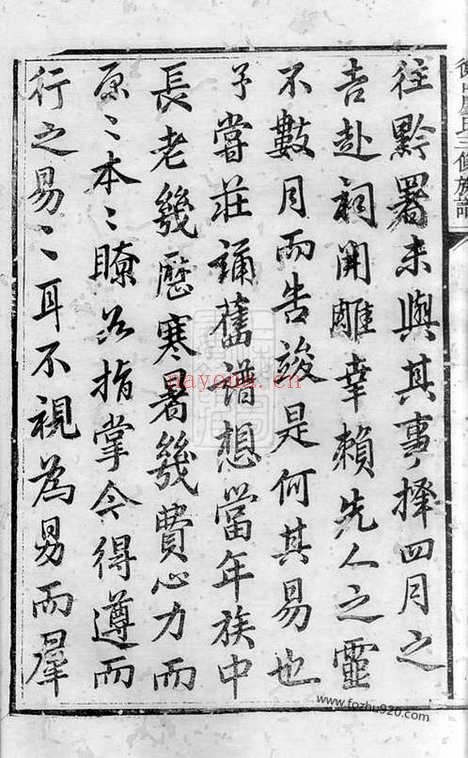 往黔署未與其事擇四月之
吉赴祠開雕幸賴先人之靈
不數月而告竣是何其易也
予嘗莊誦舊譜想當年族中
長老幾歷寒暑幾費心力而
原〻本〻瞭若指掌今得遵而
行之易〻耳不視為易而羣
三修族譜
nayona.cn
www.fozhu920.com